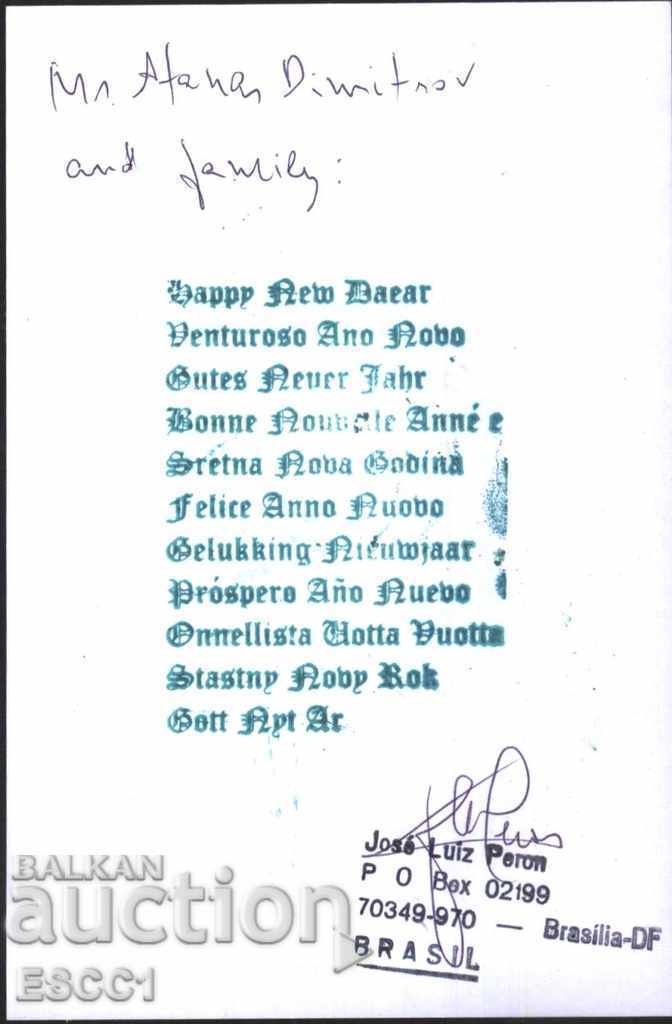 Mr. Atanas Dimitrov
and family:
Happy New Daear
Venturoso Ano Novo
Gutes Neuer Jahr
Bonne Nouvelle Année
Sretna Nova Godina
Felice Anno Nuovo
Gelukking Nieuwjaar
Próspero Año Nuevo
Onnellista Uotta Vuotta
Stastny Novy Rok
Gott Nyt Ar
José Luiz Peron
P O Box 02199
70349-970 — Brasília-DF
BRASIL
BALKAN
auction
ESCC1